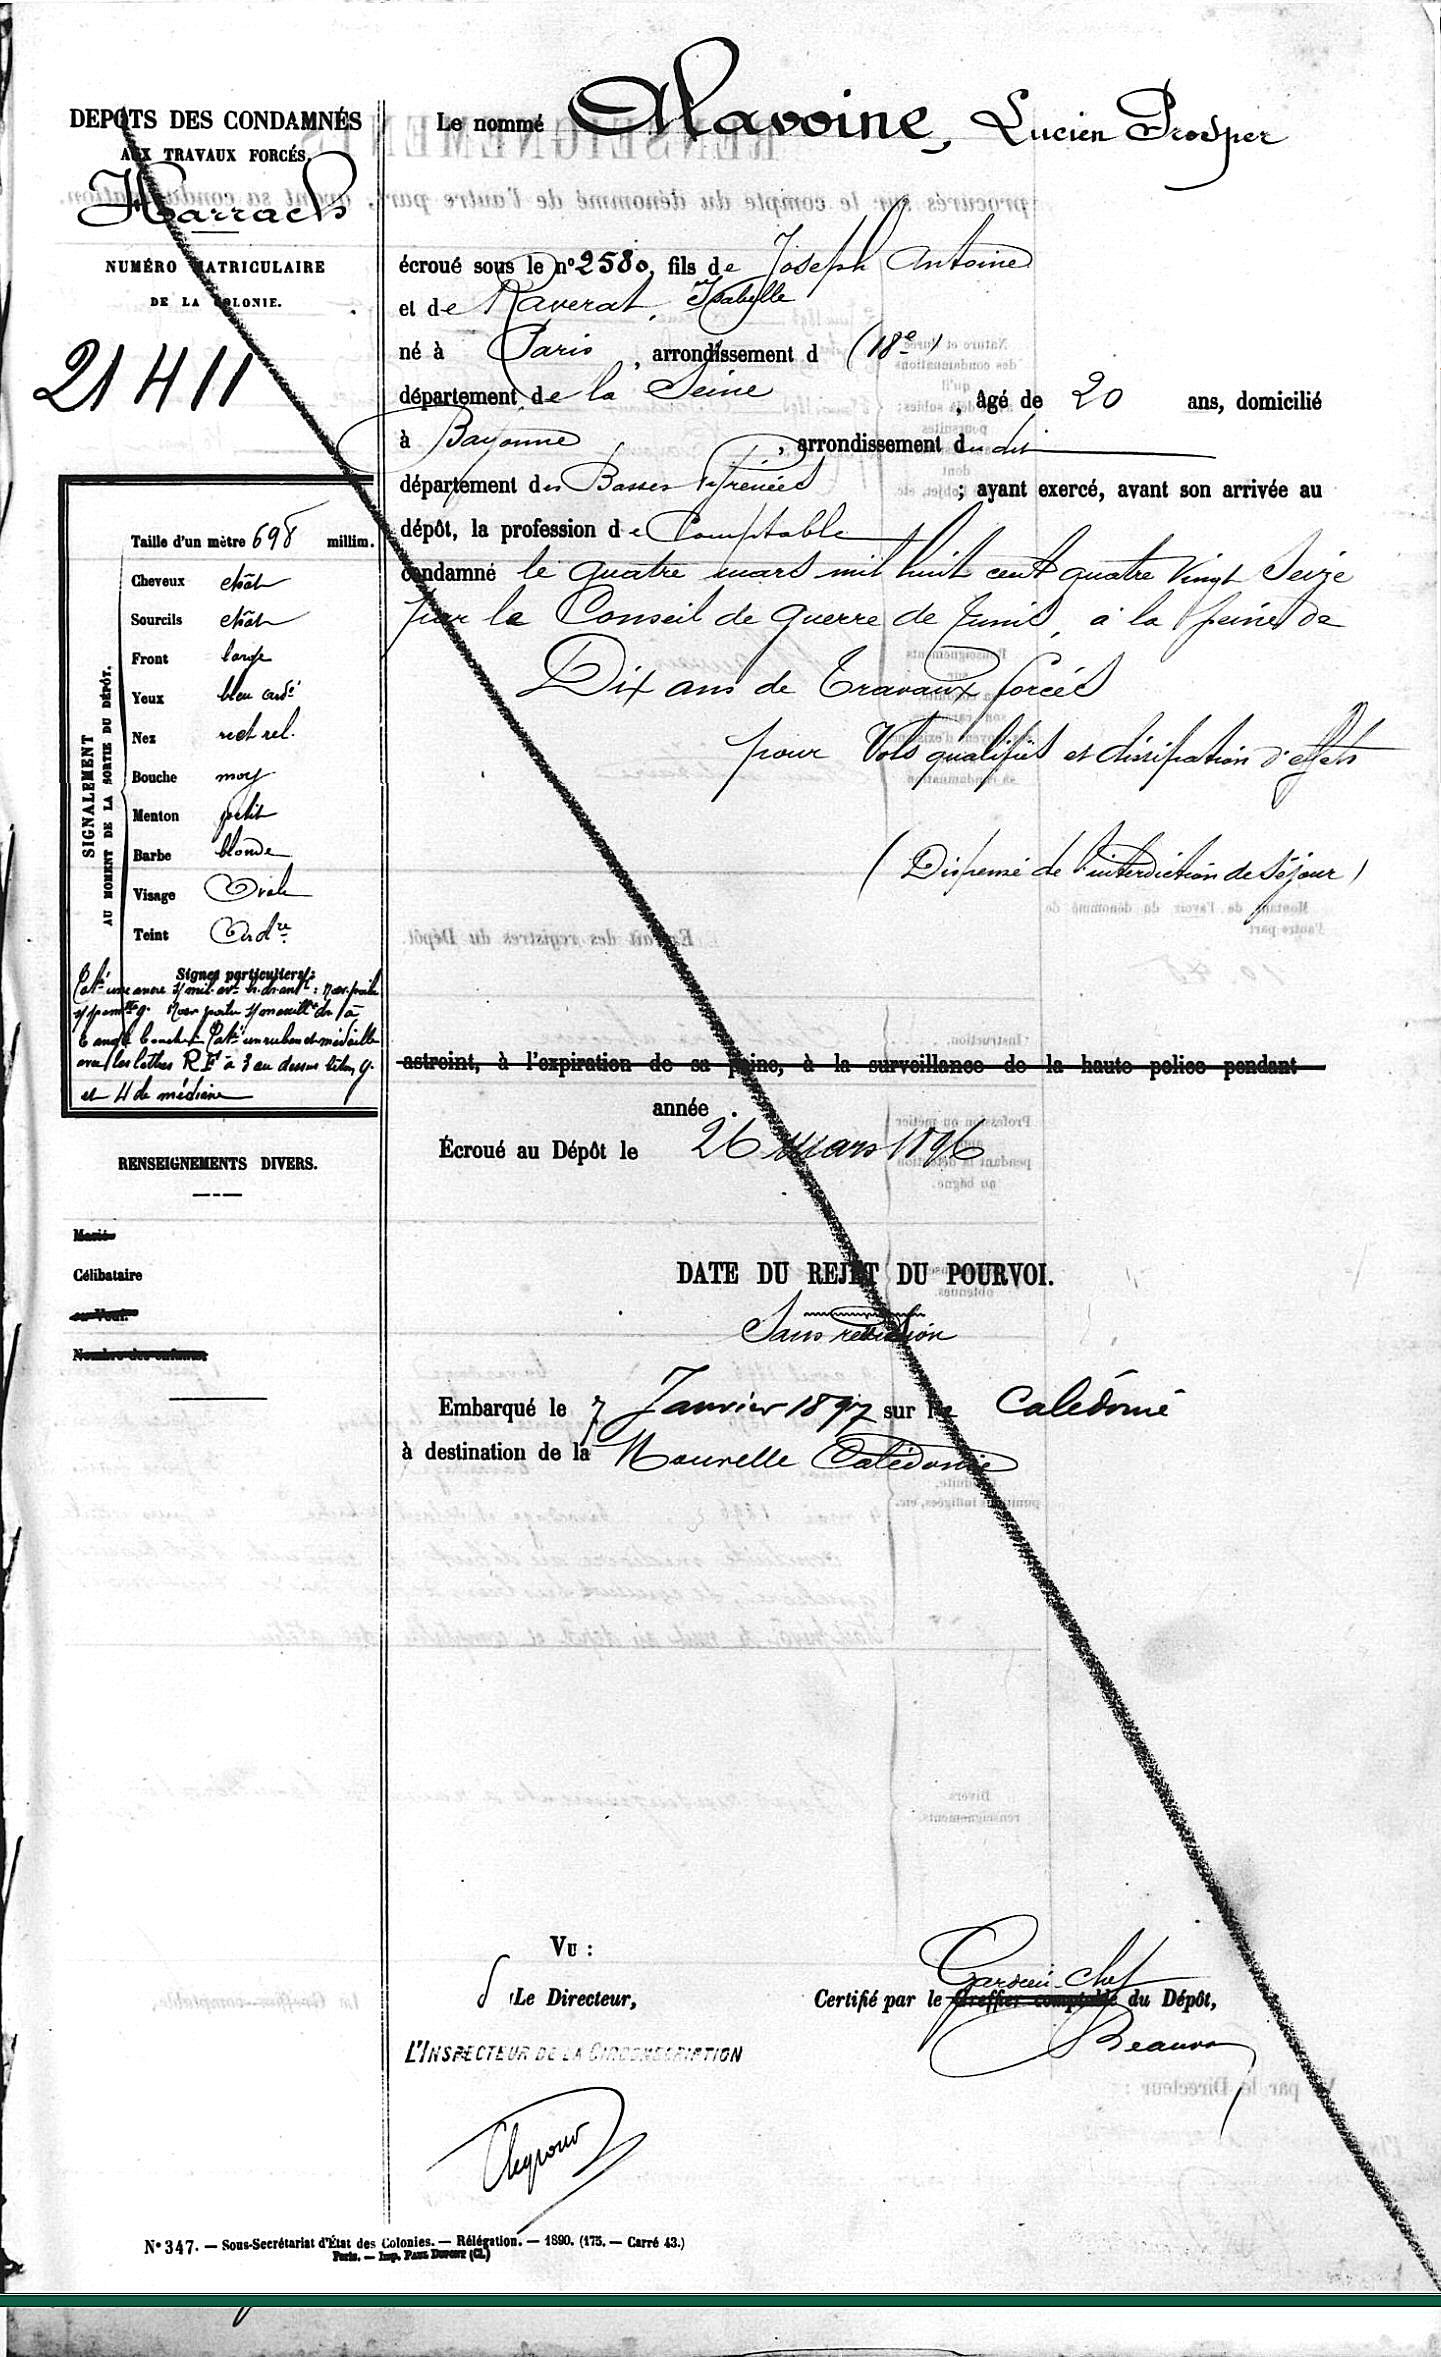 DEPOTS DES CONDAMNÉS
AUX TRAVAUX FORCÉS.
Harrach
NUMÉRO MATRICULAIRE
DE LA COLONIE.
21411
Le nommé Alavoine, Lucien Prosper
écroué sous le nº 2580, fils de Joseph Antoine
et de Raverat, Isabelle
né à Paris, arrondissement d (18e)
département de la Seine, âgé de 20 ans, domicilié
à Bayonne, arrondissement du dit
département des Basses Pyrénées; ayant exercé, avant son arrivée au
dépôt, la profession de Comptable
condamné le quatre mars mil huit cent quatre vingt seize
par le Conseil de guerre de Tunis, à la peine de
Dix ans de Travaux forcés
pour Vols qualifiés et dissipation d'effets
(Dispensé de l'interdiction de séjour)
astreint, à l'expiration de sa peine, à la surveillance de la haute police pendant
année.
Écroué au Dépôt le 26 mars 1896
DATE DU REJET DU POURVOI.
Sans révision
Embarqué le 7 Janvier 1897 sur le Calédonie
à destination de la Nouvelle Calédonie
SIGNALEMENT
AU MOMENT DE LA SORTIE DU DÉPÔT.
Taille d'un mètre 698 millim.
Cheveux chât
Sourcils chât
Front large
Yeux bleu ard
Nez rect rel.
Bouche moy
Menton petit
Barbe blonde
Visage Ovale
Teint Ordre
Signes particuliers:
avec les lettres R F à 3 au dessus
et 4 de médiane
RENSEIGNEMENTS DIVERS.
Marié
Célibataire
ou Veuf.
Nombre des enfants
VU :
Le Directeur,
L'INSPECTEUR DE LA CIRCONSCRIPTION
Gardien-Chef
Certifié par le Greffier comptable du Dépôt,
Nº 347. — Sous-Secrétariat d'État des Colonies. — Rélégation. — 1890. (175. — Carré 43.)
Paris. — Imp. PAUL DUPONT (Cl.)